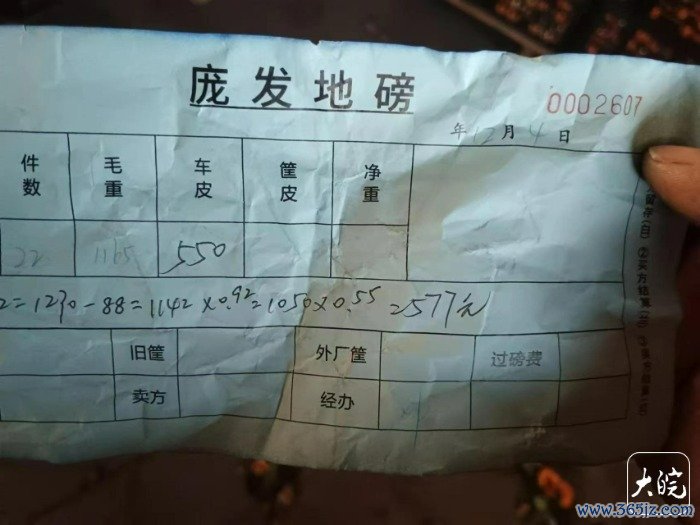 庞发地磅
0002607
年12月4日
件数 毛重 车皮 筐皮 净重
22 1165 550
2=1230-88=1142×0.92=1050×0.55=577元
旧筐 外厂筐 过磅费
卖方 经办
大皖
www.365jz.com